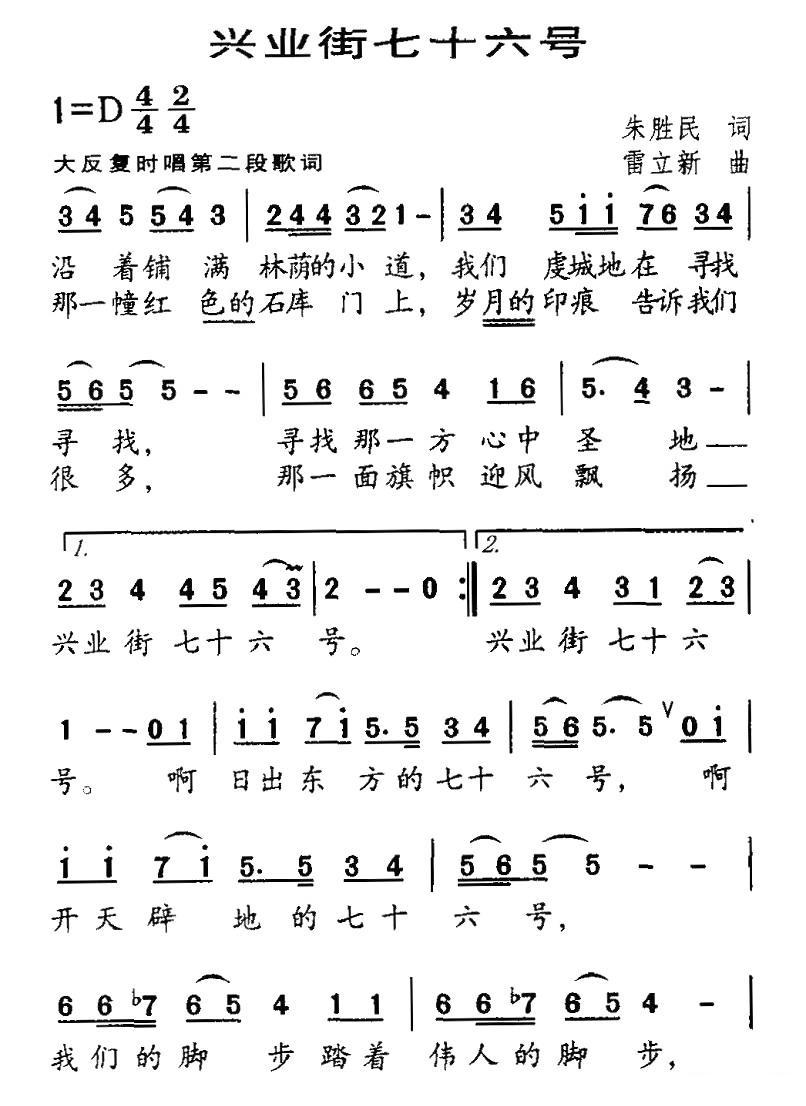 兴业街七十六号
1=D 4/4 2/4
朱胜民 词
大反复时唱第二段歌词
雷立新 曲
3 4 5 5 4 3 | 2 4 4 3 2 1 - | 3 4 5 i i 7 6 3 4 |
沿着铺满林荫的小道，我们虔城地在寻找
那一幢红色的石库门上，岁月的印痕告诉我们
5 6 5 5 - - | 5 6 6 5 4 1 6 | 5. 4 3 - |
寻找，寻找那一方心中圣地
很多，那一面旗帜迎风飘扬
1. 2.
2 3 4 4 5 4 3 | 2 - - 0 :‖ 2 3 4 3 1 2 3 |
兴业街七十六号。兴业街七十六
1 - - 0 1 | i i 7 i 5. 5 3 4 | 5 6 5. 5 V 0 i |
号。啊日出东方的七十六号，啊
i i 7 i 5. 5 3 4 | 5 6 5 5 - - |
开天辟地的七十六号，
6 6 b7 6 5 4 1 1 | 6 6 b7 6 5 4 - |
我们的脚步踏着伟人的脚步，